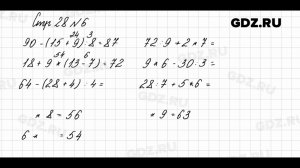 GDZ.RU
Стр. 28 № 6
24 3
90 - (15 + 9) : 8 = 87
72 : 9 + 2 * 7 =
54 6
18 + 9 * (13 - 7) = 72
9 * 6 - 30 : 3 =
64 - (28 + 4) : 4 =
28 : 7 + 5 * 6 =
* 8 = 56
* 9 = 63
6 * = 54
GDZ.RU